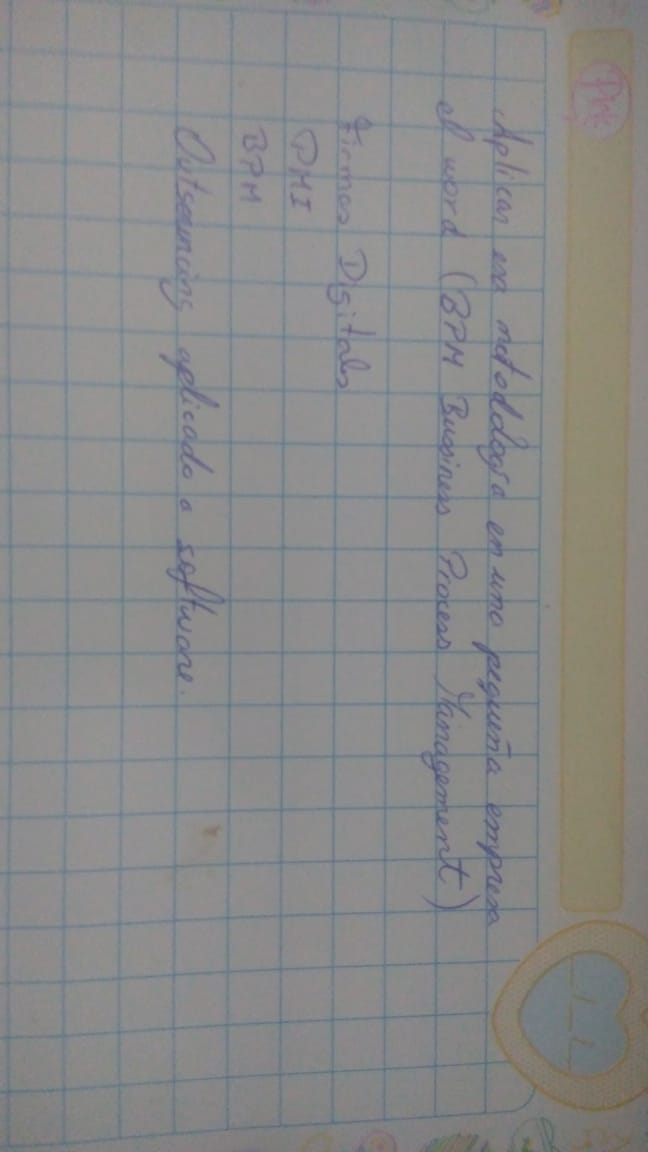 Aplicar esa metodología en una pequeña empresa
el word (BPM Bussiness Process Management)
Firmas Digitales
PMI
BPM
Outsourcing aplicado a software.